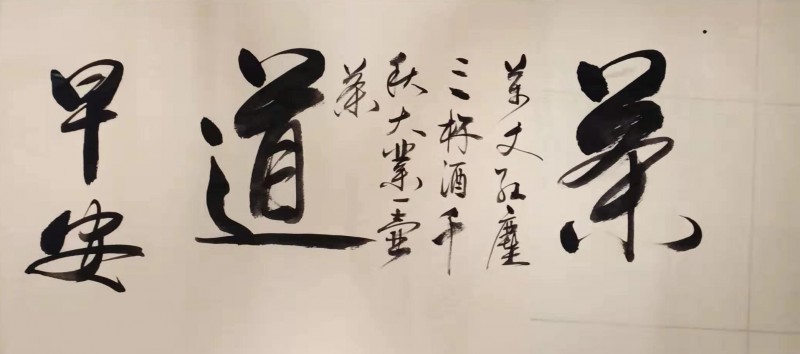 茶
万丈红尘
三杯酒千
秋大业一壶
茶
道
早安